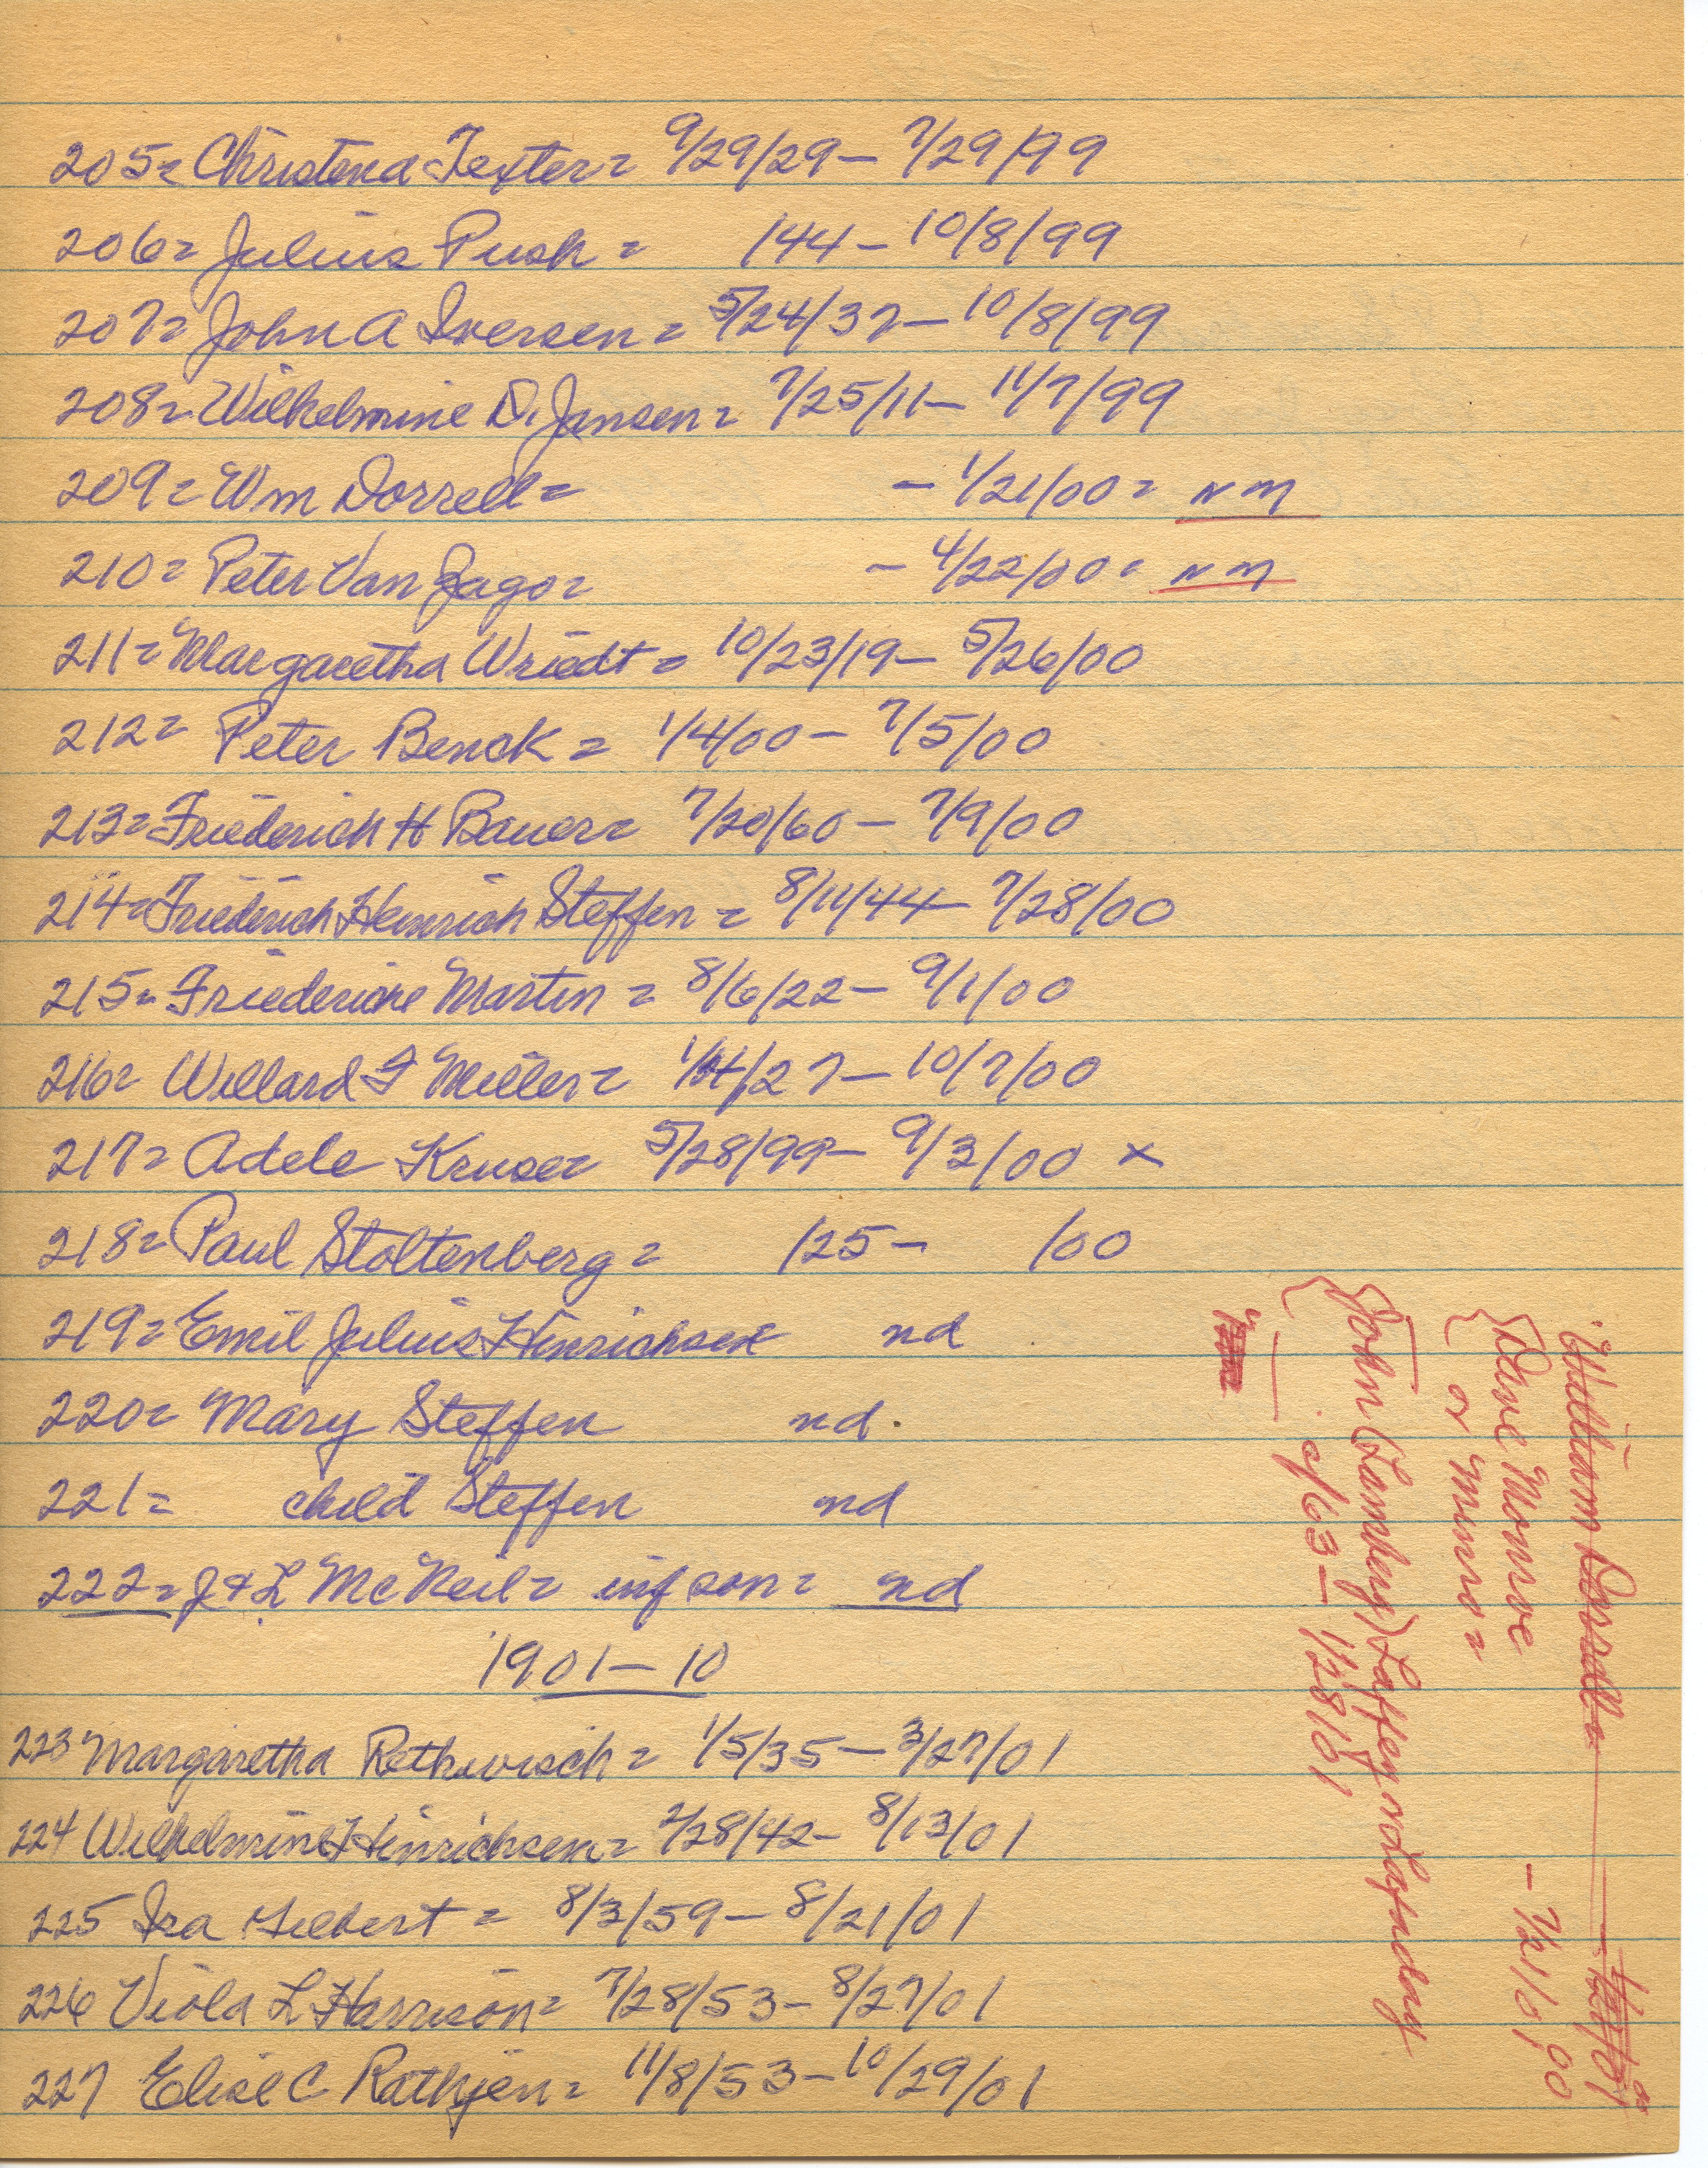 205= Christena Texter= 9/29/29 - 7/29/99
206= Julius Push = /44 - 10/8/99
207= John A Iversen = 5/24/37 - 10/8/99
208= Wilhelmine D. Jansen = 7/25/11 - 11/7/99
209= Wm Dorrell = - 1/21/00 = NM
210= Peter Van Jago= - 4/22/00 = NM
211= Margaretha Wriedt = 10/23/19 - 5/26/00
212= Peter Benck = 1/4/00 - 7/5/00
213= Friederich H Bauer= 7/20/60 - 7/9/00
214= Friederich Heinrich Steffen = 8/11/44 - 7/28/00
215= Friedericke Martin = 8/6/22 - 9/1/00
216= Willard F Miller= 1/14/27 - 10/7/00
217= Adele Kruse= 5/28/99 - 9/3/00 x
218= Paul Stoltenberg = /25 - /00
219= Emil Julius Hinrichsen nd
220= Mary Steffen nd.
221= child Steffen nd
222= J & L McNeil= inf son = nd
1901-10
223 Margaretha Rethwisch = 1/5/35 - 3/27/01
224 Wilhelmine Hinrichsen= 2/28/42 - 8/13/01
225 Ira Gilbert = 8/3/59 - 8/21/01
226 Viola L Harrison= 7/28/53 - 8/27/01
227 Elise C Rathjen= 11/8/53 - 10/29/01
William Dorrell=
{Dane Monroe - 7/21/01,00
{ or Minro =
{John (Lamberg) Laffey no
{ c/63 - 1/28/01